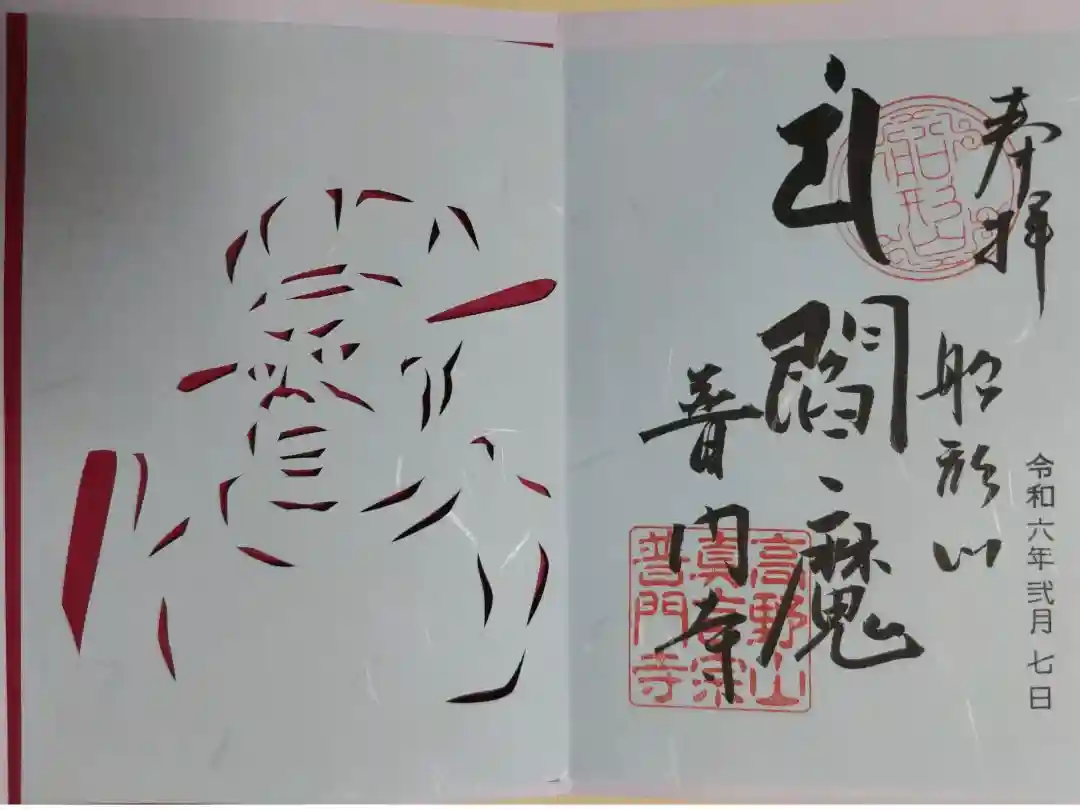 奉拝
令和六年弐月七日
船形山
閻魔
普門寺
船形山
高野山
真言宗
普門寺